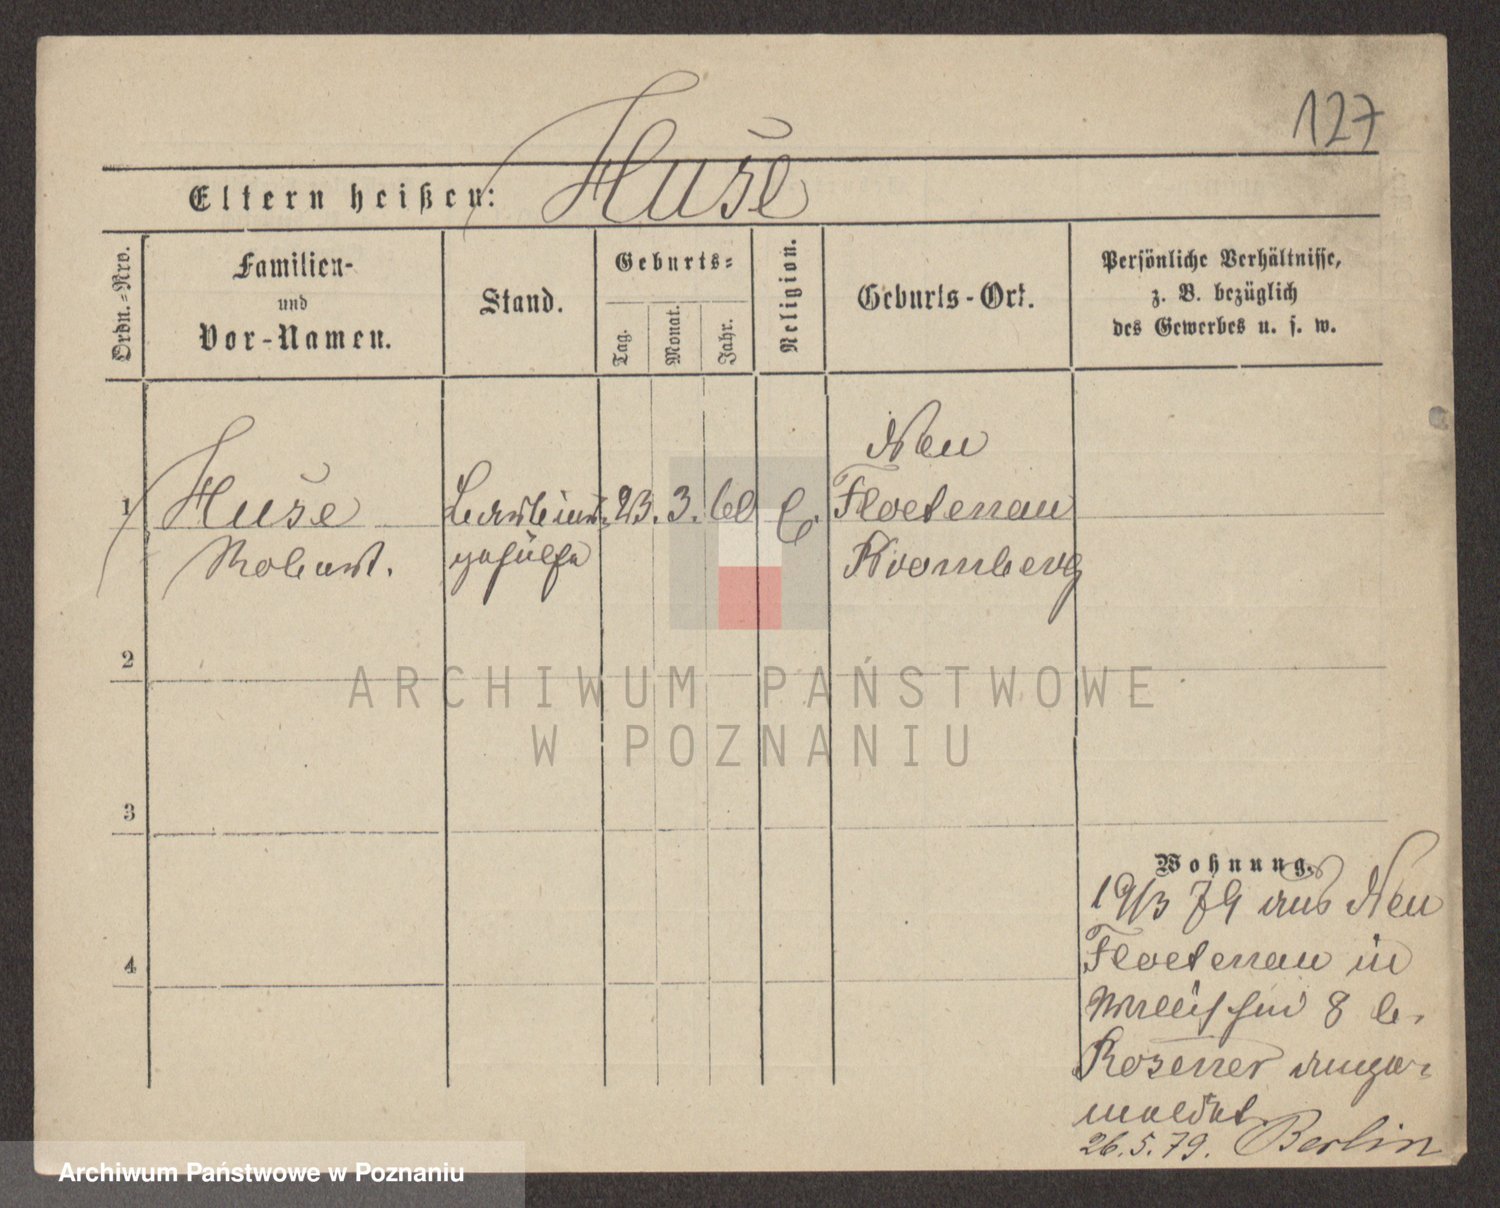 127
Eltern heißen: Huse
Ordn.-Nro.
Familien-
und
Vor-Namen.
Stand.
Geburts-
Tag.
Monat.
Jahr.
Religion.
Geburts-Ort.
Persönliche Verhältnisse,
z. B. bezüglich
des Gewerbes u. s. w.
1 Huse
Robert.
gehülfe
23. 3. 60
Neu
Floetenau
Bromberg
2
3
4
Wohnung.
19/3 79 aus Neu
Floetenau in
Wallischei 8 b.
Rosener ange-
meldet
26.5.79. Berlin
ARCHIWUM PAŃSTWOWE
W POZNANIU
Archiwum Państwowe w Poznaniu